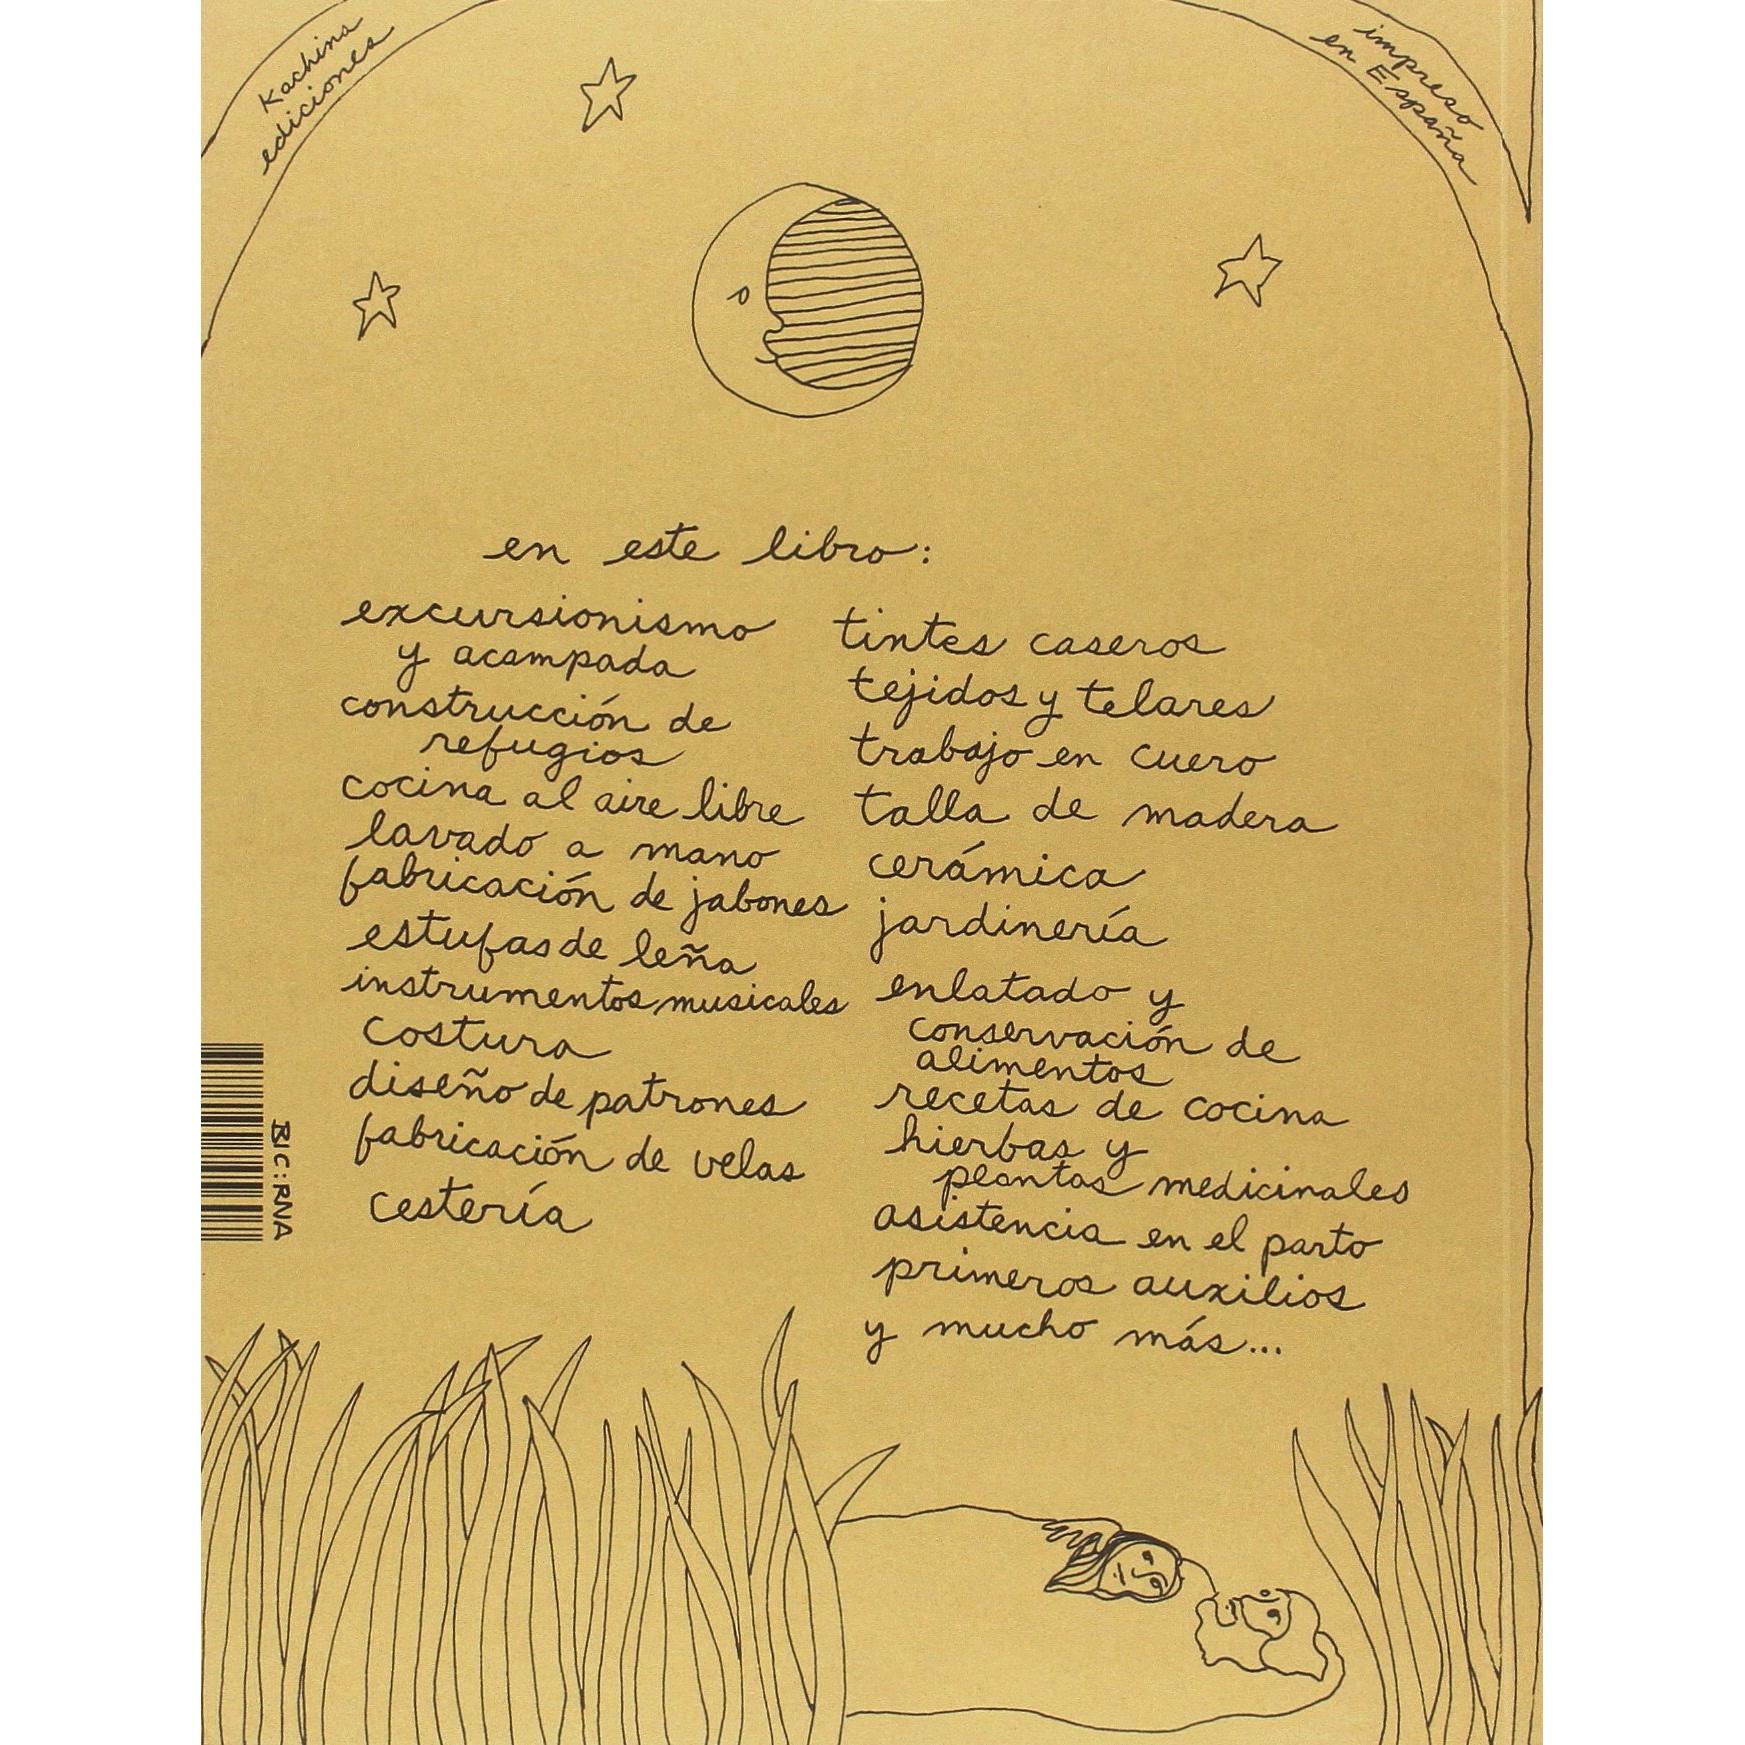 Kachina
ediciones
impreso
en España
en este libro:
excursionismo
y acampada
construcción de
refugios
cocina al aire libre
lavado a mano
fabricación de jabones
estufas de leña
instrumentos musicales
costura
diseño de patrones
fabricación de velas
cestería
tintes caseros
tejidos y telares
trabajo en cuero
talla de madera
cerámica
jardinería
enlatado y
conservación de
alimentos
recetas de cocina
hierbas y
plantas medicinales
asistencia en el parto
primeros auxilios
y mucho más...
BIC:RNA